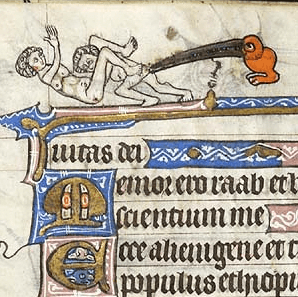 uitas dei
Memor ero raab et b
scientium me
Ecce alienigene et t
populus ethiopu